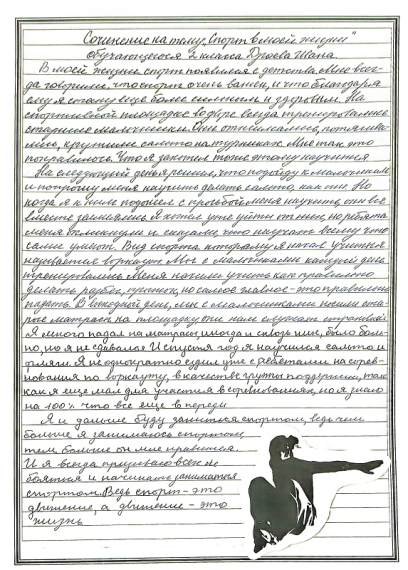 Сочинение на тему „Спорт в моей жизни"
обучающегося 2 класса
В моей жизни спорт появился с детства. Мне всег-
да говорили, что спорт очень важен, и что благодаря
ему я стану ещё более сильным и здоровым. На
спортивной площадке во дворе всегда тренировались
старшие мальчишки. Они отжимались, подтягива-
лись, крутили сальто на турниках. Мне так это
понравилось. Что я захотел тоже этому научится
На следующий день я решил, что подойду к мальчишкам
и попрошу меня научить делать сальто, как они. Но
когда я к ним подошел с просьбой меня научить, они все
вместе засмеялись. Я хотел уже уйти от них, но ребята
меня окликнули и сказали, что научат всему что
сами умеют. Вид спорта которому я начал учится
называется воркаут. Мы с мальчишками каждый день
тренировались. Меня начали учить как правильно
делать разбег, прыжок, но самое главное - это правильно
падать. В выходной день, мы с мальчишками носили ста-
рые матрасы на площадку, они нам служат страховкой
Я много падал на матрасы, иногда и сквозь них, было боль-
но, но я не сдавался. И спустя год я научился сальто и
фляги. Я неоднократно ездил уже с ребятами на сорев-
нования по воркауту, в качестве группы поддержки, так
как я еще мал для участия в соревнованиях, но я знаю
на 100% что все еще в переди
Я и дальше буду заниматься спортом, ведь чем
больше я занимаюсь спортом,
тем больше он мне нравится.
И я всегда призываю всех не
бояться и начинать заниматься
спортом. Ведь спорт - это
движение, а движение - это
жизнь